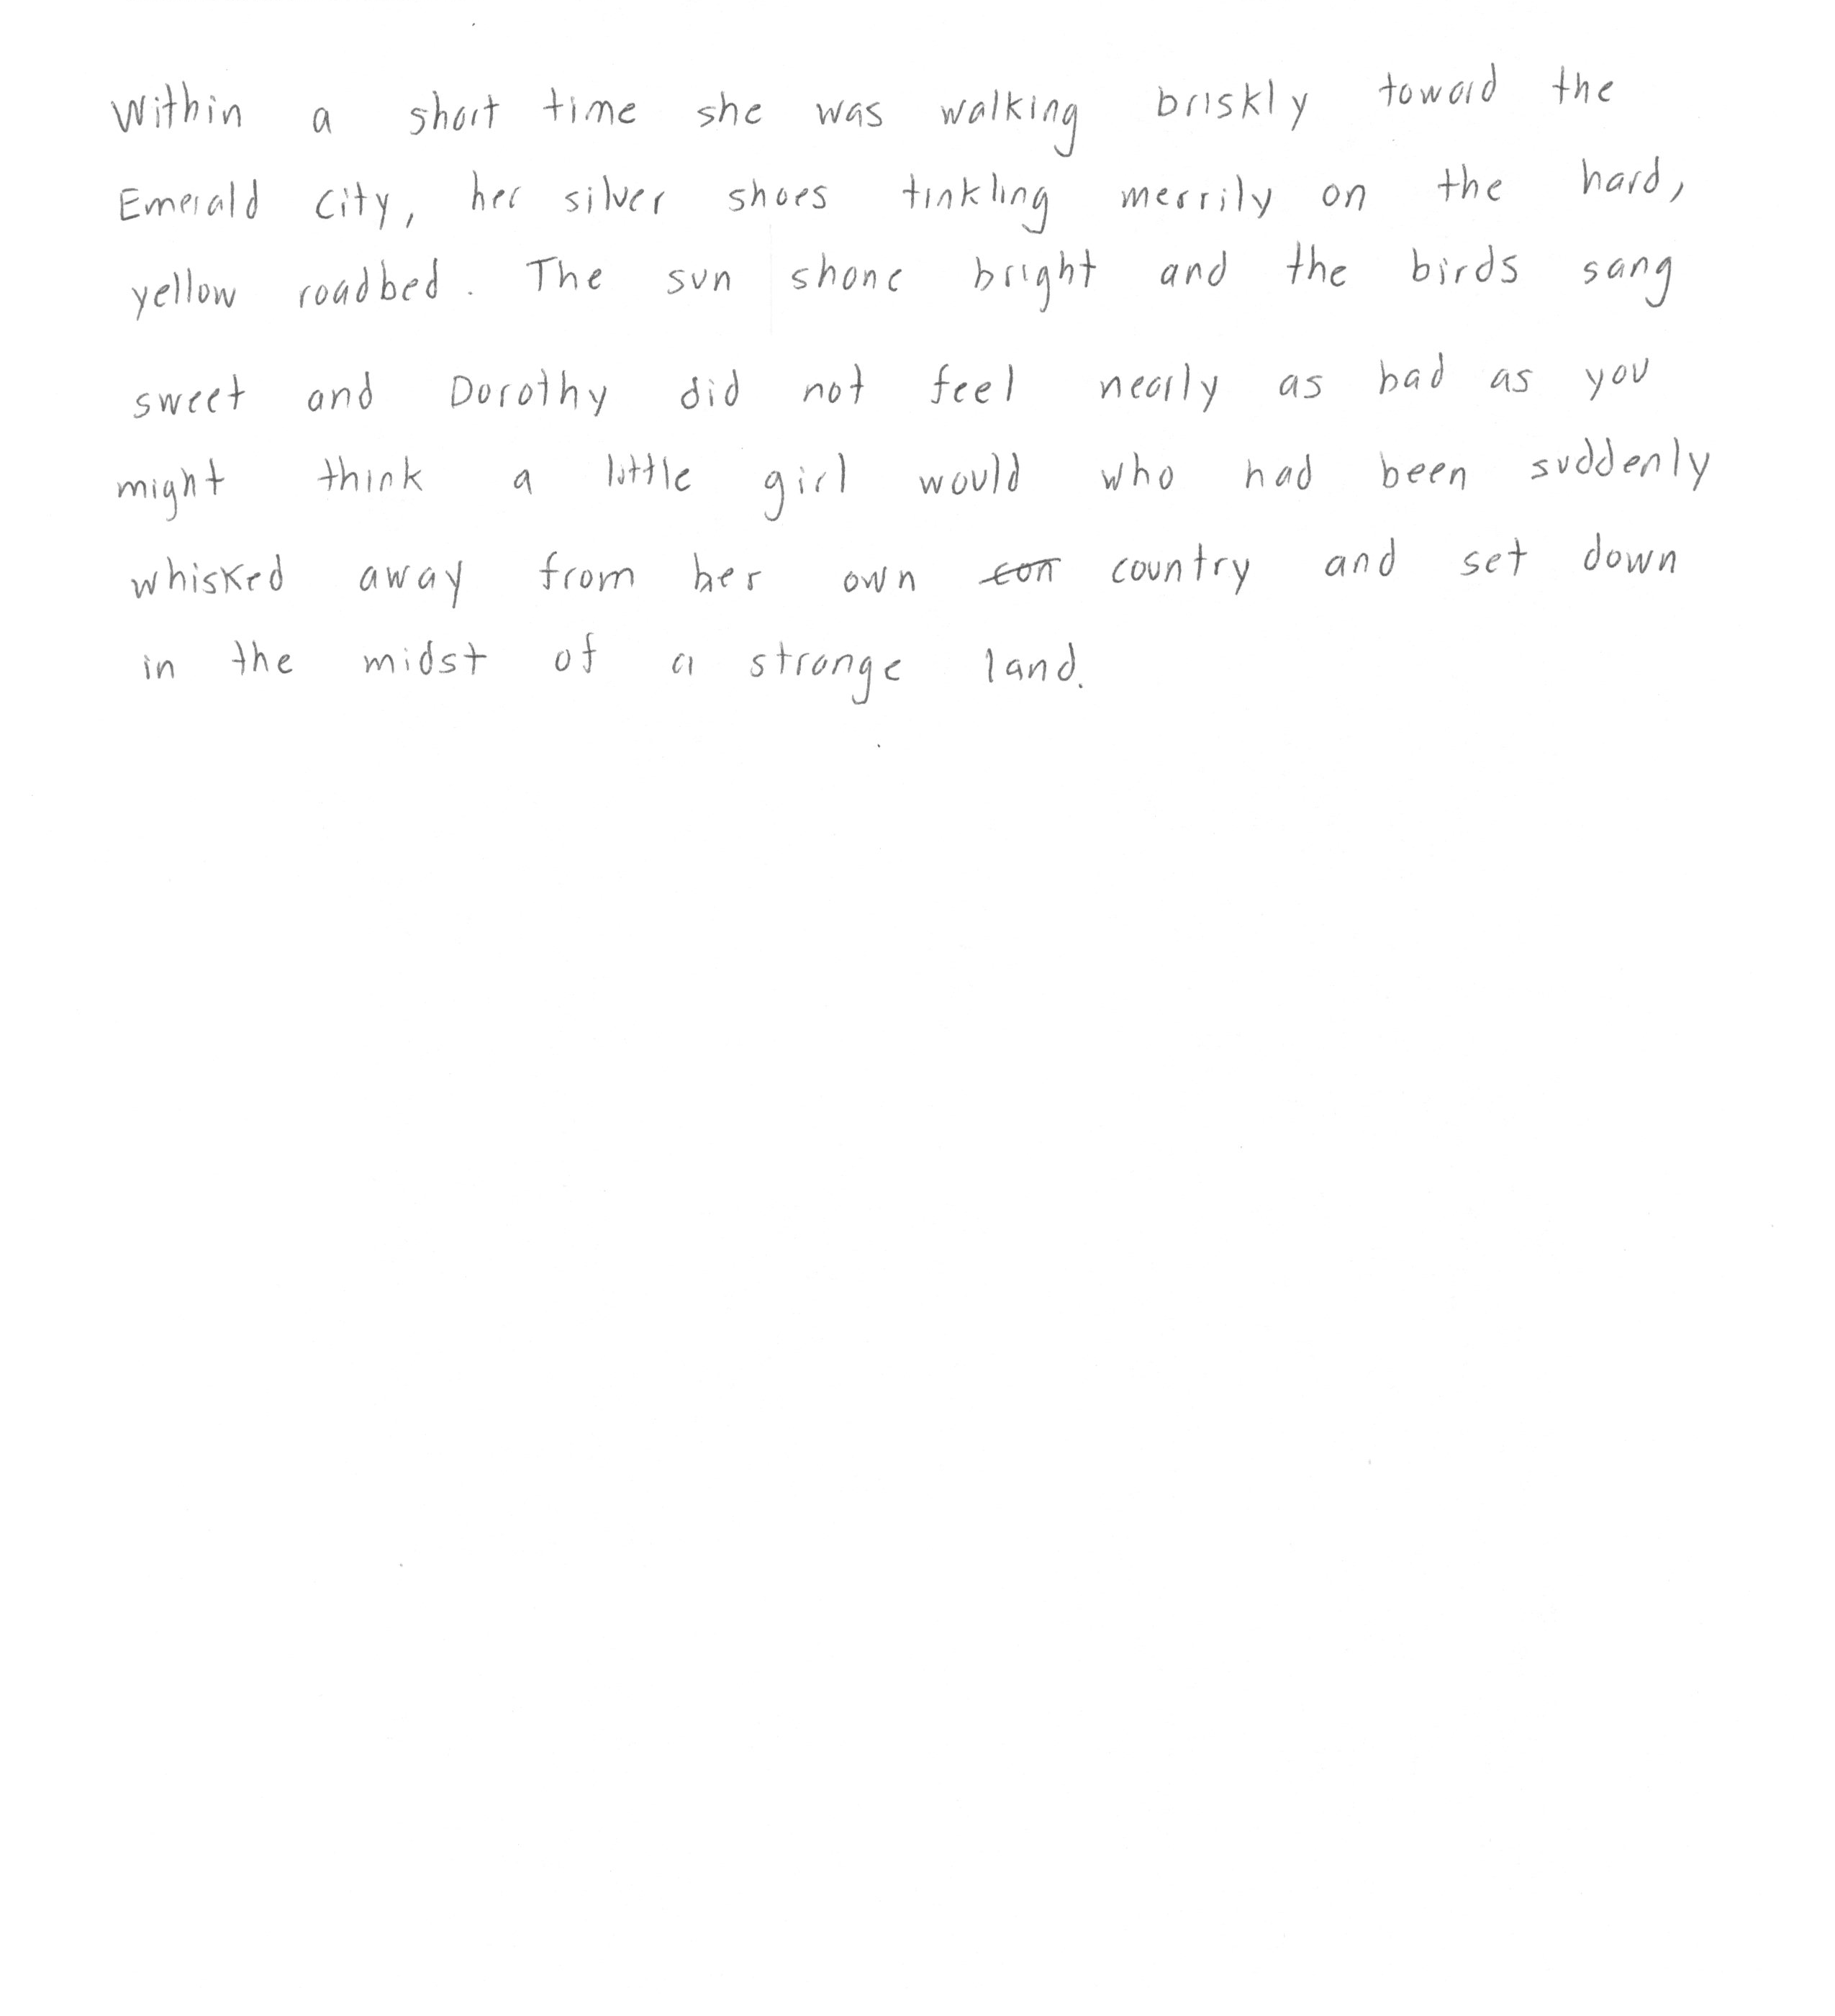 Within a short time she was walking briskly toward the
Emerald City, her silver shoes tinkling merrily on the hard,
yellow roadbed. The sun shone bright and the birds sang
sweet and Dorothy did not feel nearly as bad as you
might think a little girl would who had been suddenly
whisked away from her own con country and set down
in the midst of a strange land.